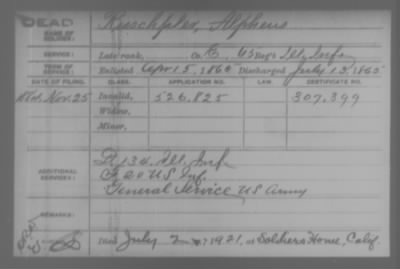 DEAD
NAME OF SOLDIER:
Alpheus
SERVICE:
Late rank, Co. E, US Reg't Inf.
TERM OF SERVICE:
Enlisted Apr 15, 1866 Discharged July 13, 1865
DATE OF FILING. CLASS. APPLICATION NO. LAW. CERTIFICATE NO.
Nov. 25 Invalid, 526,825 307,399
Widow,
Minor,
ADDITIONAL SERVICES:
134 Inf.
20 US Inf.
General Service US Army
REMARKS:
Died July 1921, at Soldiers Home, Calif.